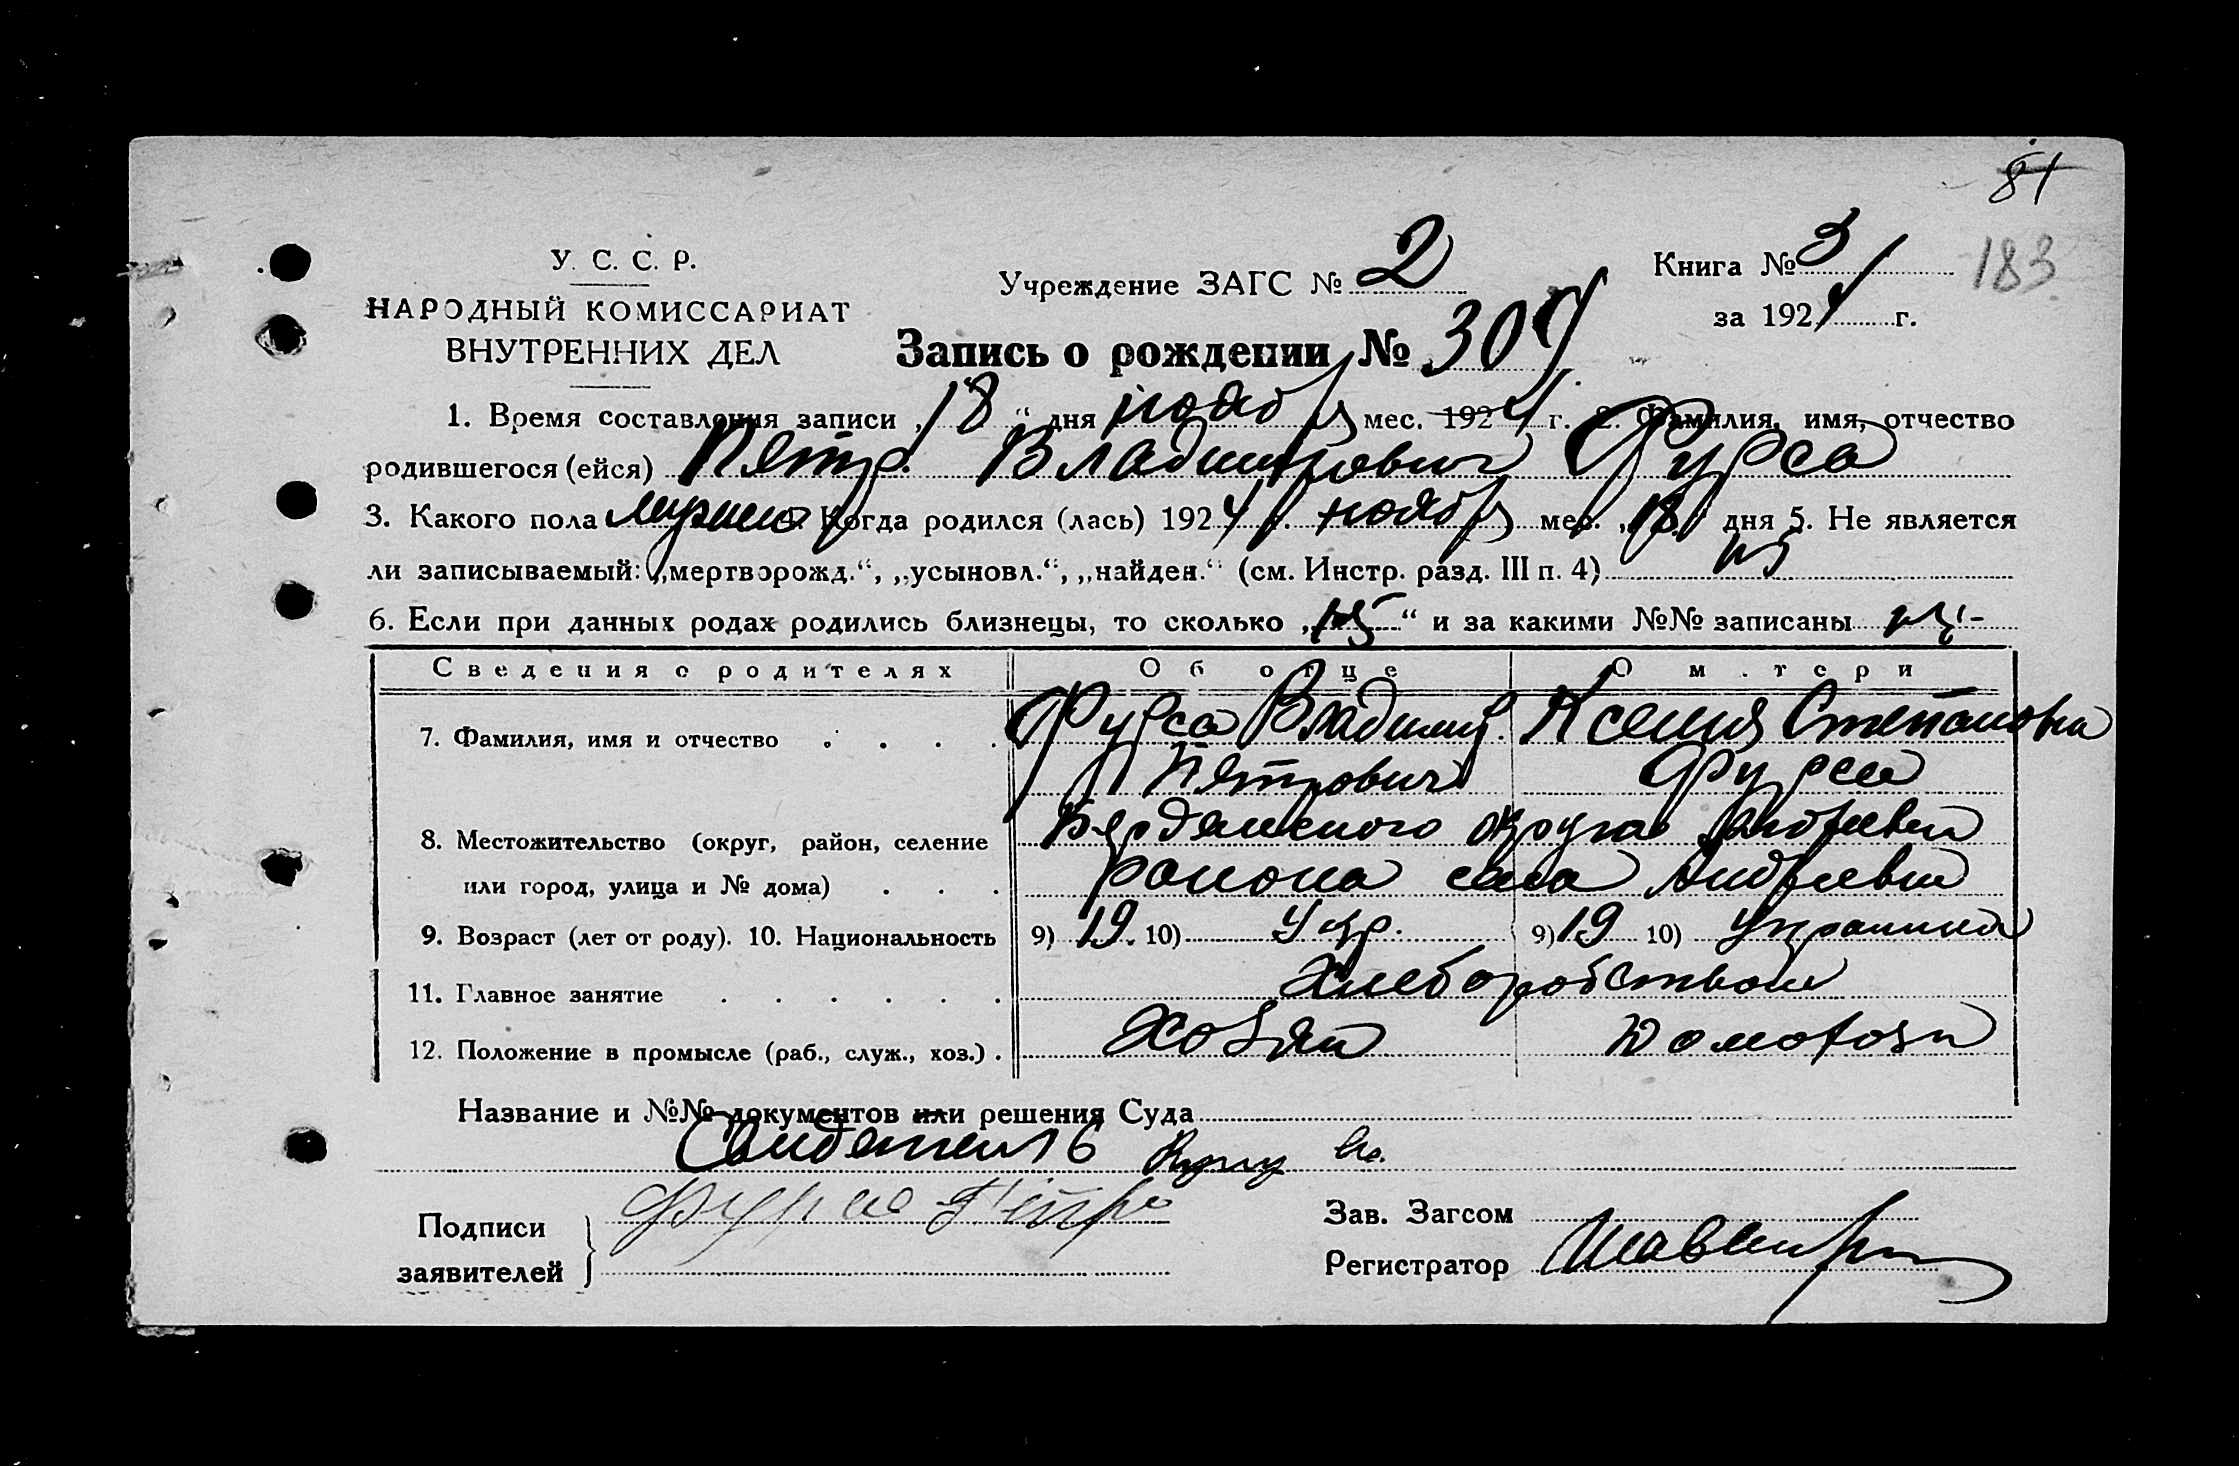 81
183
У. С. С. Р.
НАРОДНЫЙ КОМИССАРИАТ
ВНУТРЕННИХ ДЕЛ
Учреждение ЗАГС № 2
Книга № 3
за 1924 г.
Запись о рождении № 309
1. Время составления записи „18“ дня ноябр мес. 1924 г. 2. Фамилия, имя, отчество
родившегося (ейся) Петр Владимирович Фурса
3. Какого пола мужского Когда родился (лась) 1924 г. ноябр мес. „18“ дня 5. Не является
ли записываемый: „мертворожд.“, „усыновл.“, „найден.“ (см. Инстр. разд. III п. 4)
6. Если при данных родах родились близнецы, то сколько „ “ и за какими №№ записаны
Сведения о родителях Об отце О м тери
7. Фамилия, имя и отчество Фурса Владимир Ксения Степановна
Петрович Фурса
8. Местожительство (округ, район, селение Бердянского округа Андреевки
или город, улица и № дома) района села Андреевки
9. Возраст (лет от роду). 10. Национальность 9) 19 10) Укр. 9) 19 10) Украинка
11. Главное занятие Хлеборобством
12. Положение в промысле (раб., служ., хоз.) Хозяин Домохозя
Название и №№ документов или решения Суда
Свидетель
Подписи заявителей Фурса Петро
Зав. Загсом
Регистратор